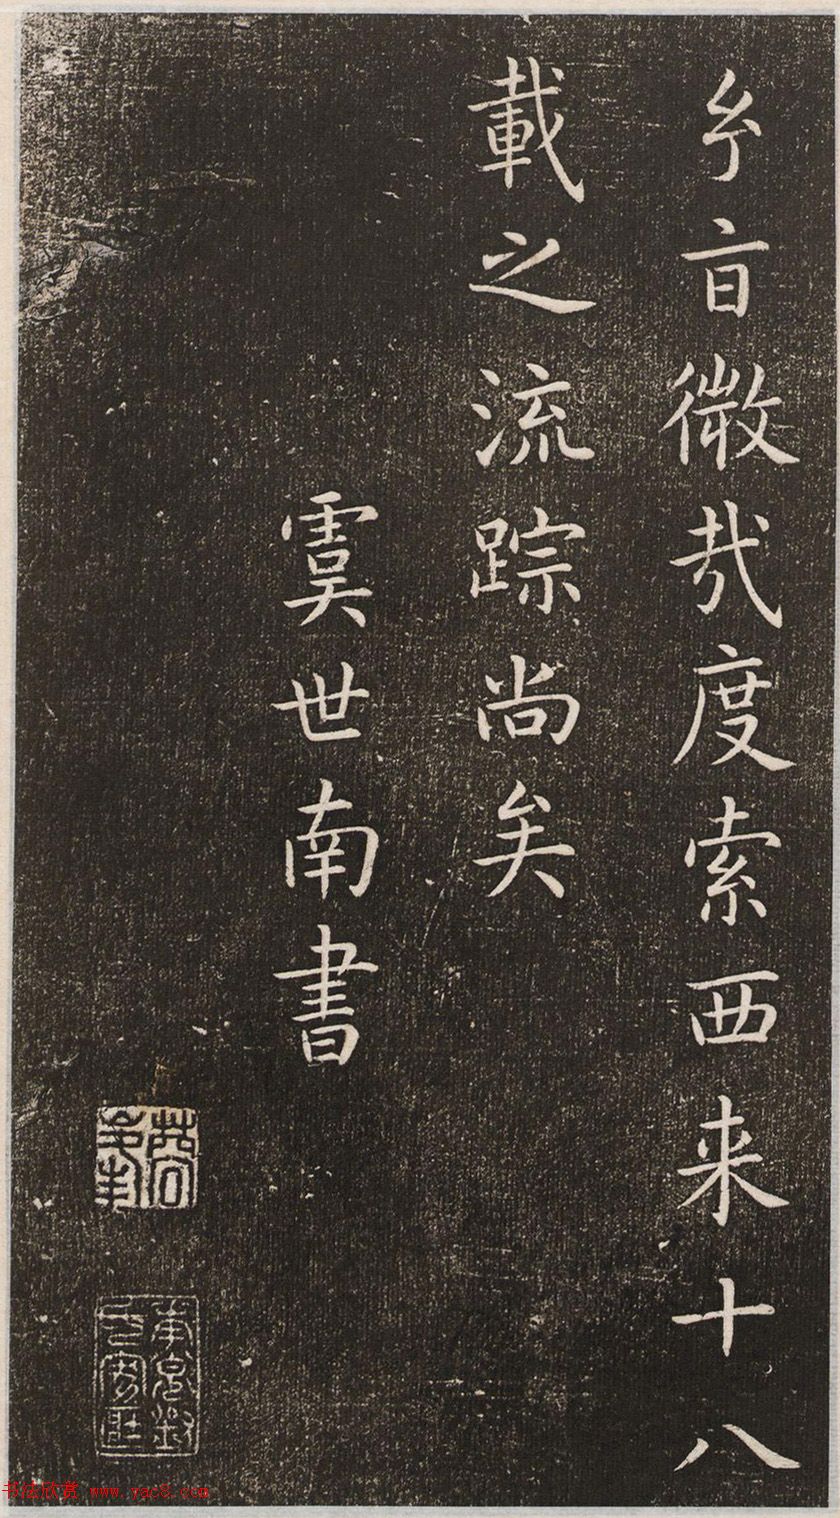 㫖微哉度索西来十八
載之流踪尚矣
虞世南書
书法欣赏 www.yac8.com